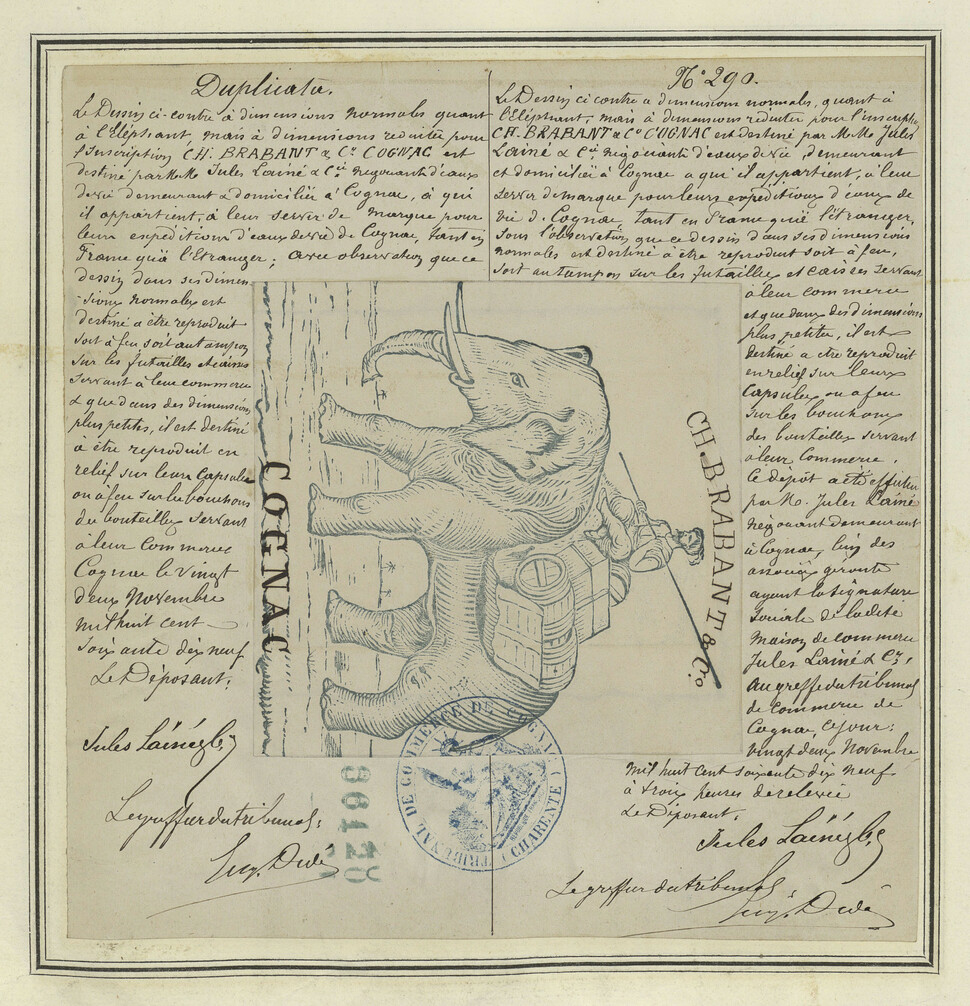 Duplicata.
Le Dessin ci-contre à dimensions normales quant
à l'Eléphant, mais à dimensions réduites pour
l'inscription CH. BRABANT & Cie COGNAC est
destiné par MM Jules Lainé & Cie négociants d'eaux
de vie demeurant & domiciliés à Cognac, à qui
il appartient, à leur servir de marque pour
leurs expéditions d'eaux de vie de Cognac, tant en
France qu'à l'Etranger; avec observation que ce
dessin dans ses dimen
sions normales est
destiné à être reproduit
soit à feu soit au tampon
sur les futailles et caisses
servant à leur commerce
& que dans des dimensions
plus petites, il est destiné
à être reproduit en
relief sur leurs Capsules
ou à feu sur les bouchons
de bouteilles servant
à leur Commerce
Cognac le vingt
deux Novembre
mil huit cent
soixante dix neuf
Le Déposant.
Jules Lainé
Le greffier du tribunal:
N° 290.
Le Dessin ci contre a dimensions normales, quant à
l'Eléphant, mais à dimensions réduites pour l'inscription
CH. BRABANT & Cie COGNAC est destiné par MM. Jules
Lainé & Cie négociants d'eaux de vie, demeurant
et domiciliés à Cognac a qui il appartient, à leur
servir de marque pour leurs expéditions d'eaux de
vie de Cognac, tant en France qu'à l'étranger,
sous l'observation que ce dessin dans ses dimensions
normales est destiné à être reproduit soit à feu,
soit au tampon sur les futailles et caisses servant
à leur commerce
et que dans des dimensions
plus petites, il est
destiné a être reproduit
en relief sur leurs
Capsules ou a feu
sur les bouchons
des bouteilles servant
à leur Commerce.
Le dépôt a été effectué
par M. Jules Lainé
négociant demeurant
à Cognac, l'un des
associés gérants
ayant la signature
sociale de la dite
Maison de commerce
Jules Lainé & Cie,
au greffe du tribunal
de commerce de
Cognac, ce jour:
vingt deux Novembre
mil huit cent soixante dix neuf
à trois heures de relevée
Le Déposant.
Jules Lainé
Le greffier du tribunal:
CH. BRABANT & Co
COGNAC
TRIBUNAL DE COMMERCE DE COGNAC (CHARENTE)